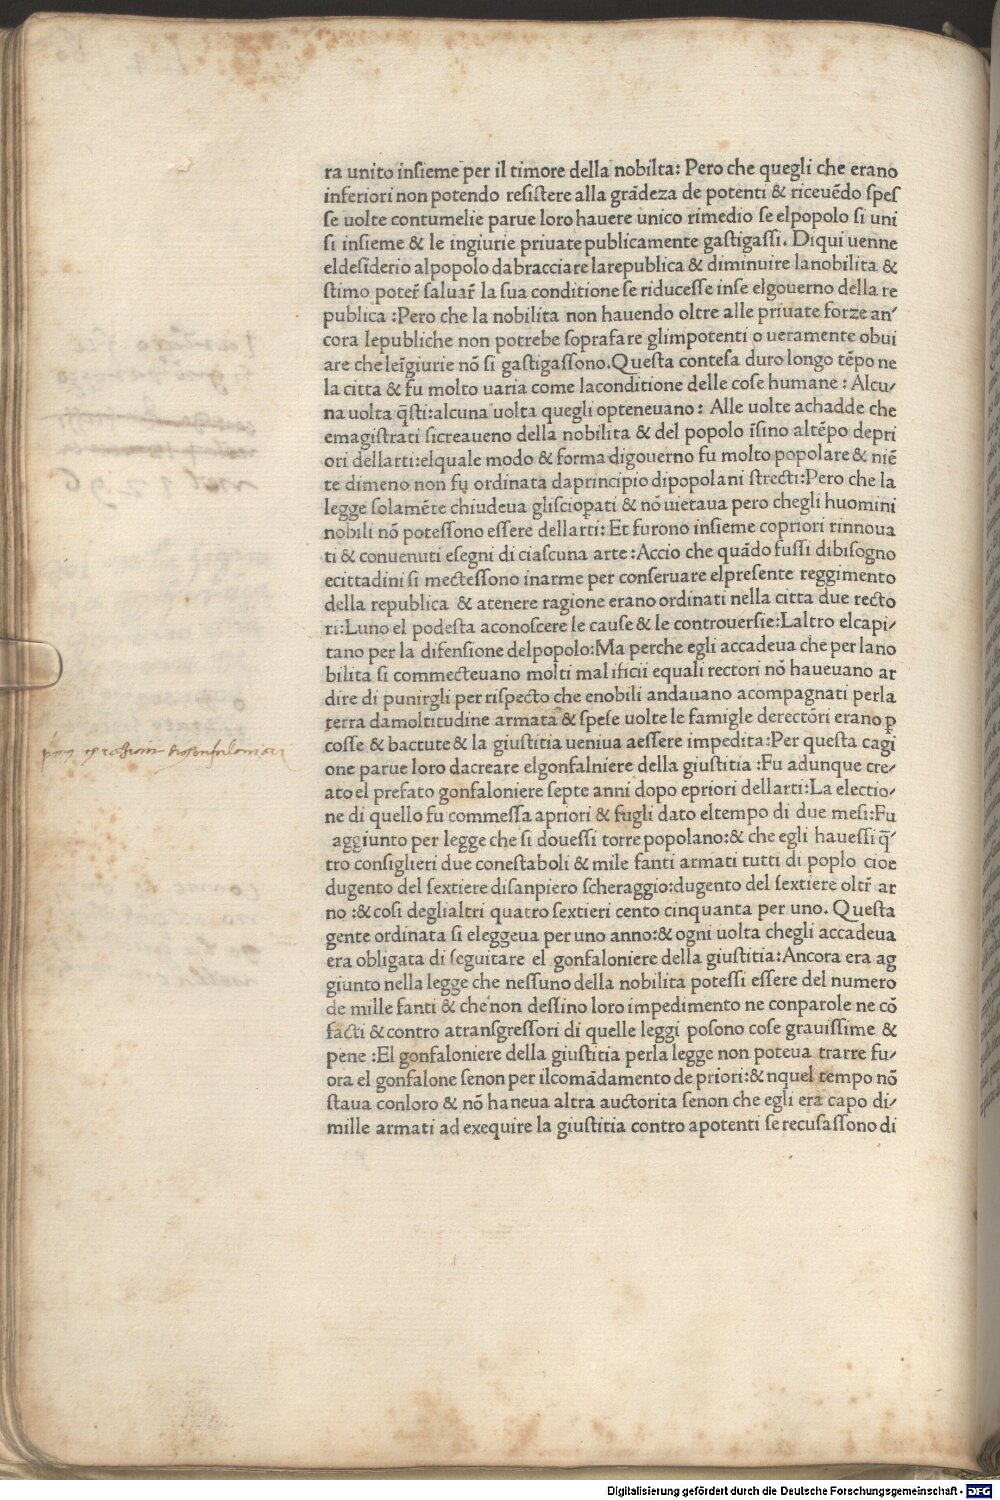 ra unito inſieme per il timore della nobilta: Pero che quegli che erano
inferiori non potendo reſiſtere alla grādeza de potenti & riceuēdo ſpeſ
ſe uolte contumelie parue loro hauere unico rimedio ſe elpopolo ſi uni
ſi inſieme & le ingiurie priuate publicamente gaſtigaſſi. Di qui uenne
eldeſiderio alpopolo dabracciare larepublica & diminuire lanobilita &
ſtimo poter̄ ſaluar̄ la ſua conditione ſe riduceſſe inſe elgouerno della re
publica :Pero che la nobilita non hauendo oltre alle priuate forze an⸗
cora lepubliche non potrebe ſoprafare glimpotenti o ueramente obui
are che leīgiurie nō ſi gaſtigaſſono. Queſta conteſa duro longo tēpo ne
la citta & fu molto uaria come laconditione delle coſe humane : Alcu⸗
na uolta q̄ſti:alcuna uolta quegli opteneuano: Alle uolte achadde che
emagiſtrati ſicreaueno della nobilita & del popolo īſino altēpo depri
ori dellarti:elquale modo & forma digouerno fu molto popolare & niē
te dimeno non fu ordinata daprincipio dipopolani ſtrecti:Pero che la
legge ſolamēte chiudeua gliſciopati & nō uietaua pero chegli huomini
nobili nō poteſſono eſſere dellarti: Et furono inſieme copriori rinnoua
ti & conuenuti eſegni di ciaſcuna arte :Accio che quādo fuſſi dibiſogno
ecittadini ſi mecteſſono inarme per conſeruare elpreſente reggimento
della republica & atenere ragione erano ordinati nella citta due recto
ri:Luno el podeſta aconoſcere le cauſe & le controuerſie:Laltro elcapi⸗
tano per la difenſione delpopolo:Ma perche egli accadeua che per lano
bilita ſi commecteuano molti malificii equali rectori nō haueuano ar
dire di punirgli per riſpecto che enobili andauano acompagnati perla
terra damoltitudine armata & ſpeſe uolte le famigle derectōri erano ꝑ
coſſe & bactute & la giuſtitia ueniua aeſſere impedita:Per queſta cagi
one parue loro dacreare elgonfalniere della giuſtitia :Fu adunque cre⸗
ato el prefato gonfaloniere ſepte anni dopo epriori dellarti:La electio⸗
ne di quello fu commeſſa apriori & fugli dato eltempo di due meſi:Fu
aggiunto per legge che ſi doueſſi torre popolano:& che egli haueſſi q̄⸗
tro conſiglieri due coneſtaboli & mile fanti armati tutti di poplo cioe
dugento del ſextiere diſanpiero ſcheraggio:dugento del ſextiere oltr̄ ar
no :& coſi deglialtri quatro ſextieri cento cinquanta per uno. Queſta
gente ordinata ſi eleggeua per uno anno:& ogni uolta chegli accadeua
era obligata di ſeguitare el gonfaloniere della giuſtitia:Ancora era ag
giunto nella legge che neſſuno della nobilita poteſſi eſſere del numero
de mille fanti & che non deſſino loro impedimento ne conparole ne cō
facti & contro atranſgreſſori di quelle leggi poſono coſe grauiſſime &
pene :El gonfaloniere della giuſtitia perla legge non poteua trarre fu⸗
ora el gonfalone ſenon per ilcomādamento de priori:& nquel tempo nō
ſtaua conloro & nō haneua altra auctorita ſenon che egli era capo di⸗
mille armati ad exequire la giuſtitia contro apotenti ſe recuſaſſono di
Digitalisierung gefördert durch die Deutsche Forschungsgemeinschaft - DFG